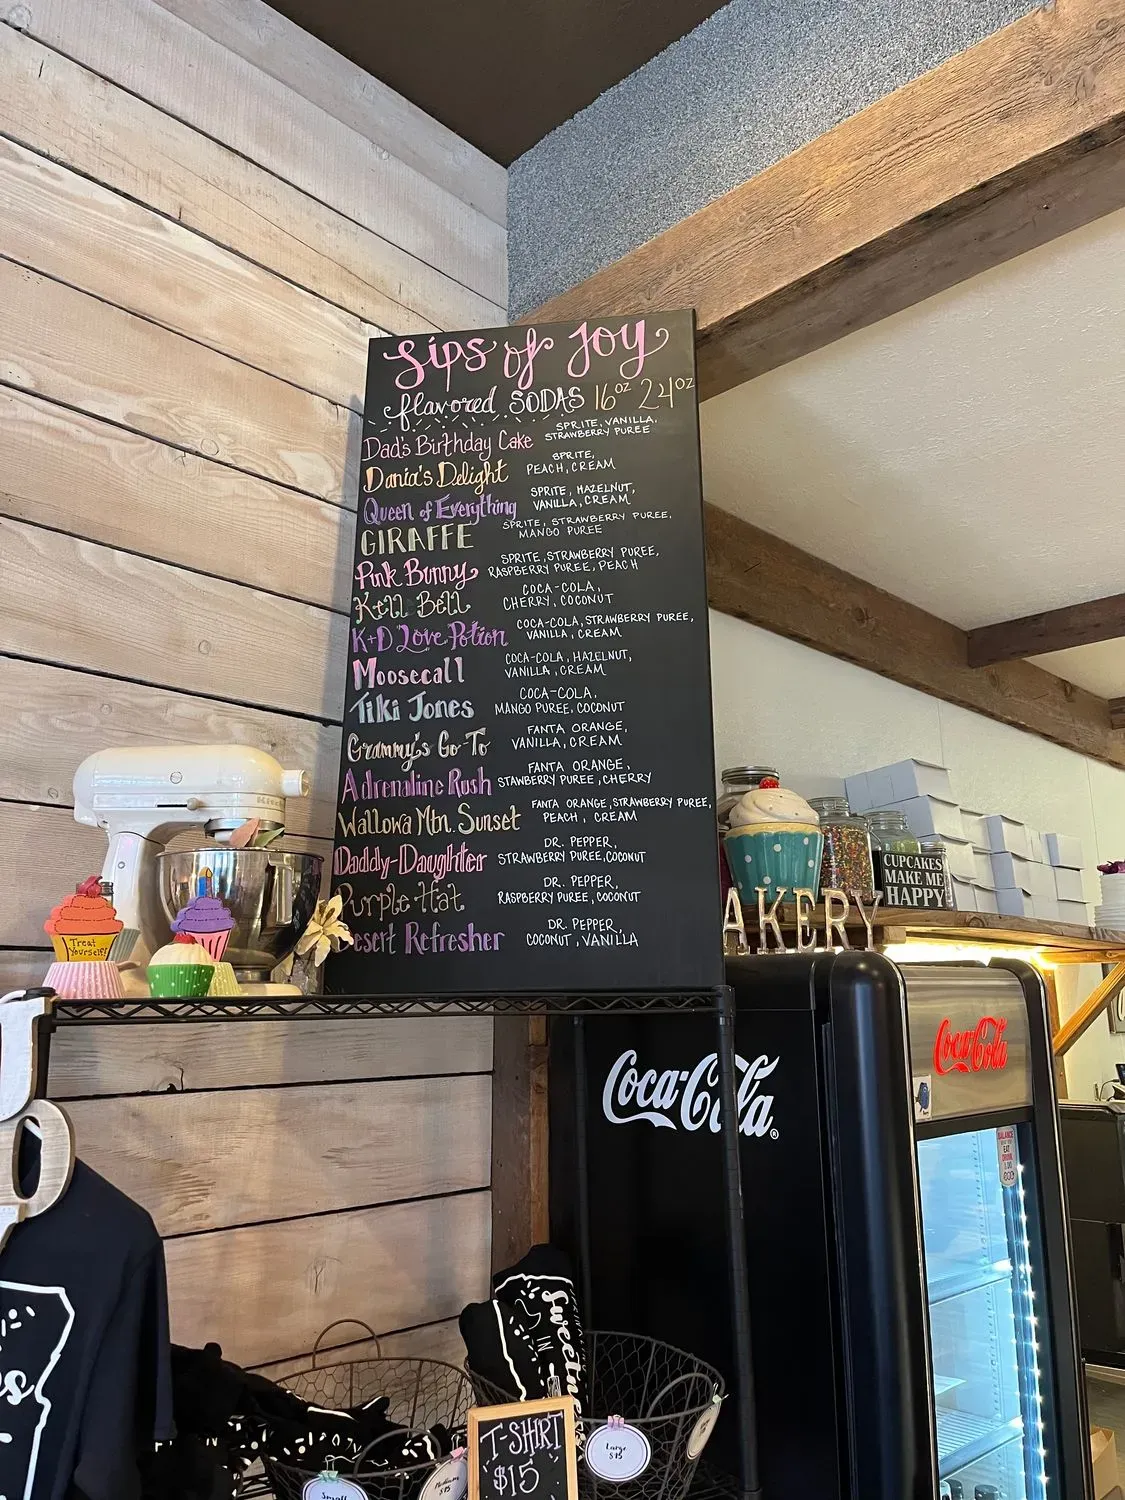 Sips of Joy
flavored SODAS 16oz 24oz
Dad's Birthday Cake
SPRITE, VANILLA,
STRAWBERRY PUREE
Dania's Delight
SPRITE,
PEACH, CREAM
Queen of Everything
SPRITE, HAZELNUT,
VANILLA, CREAM
GIRAFFE
SPRITE, STRAWBERRY PUREE,
MANGO PUREE
Pink Bunny
SPRITE, STRAWBERRY PUREE,
RASPBERRY PUREE, PEACH
Kell Bell
COCA-COLA,
CHERRY, COCONUT
K+D Love Potion
COCA-COLA, STRAWBERRY PUREE,
VANILLA, CREAM
Moosecall
COCA-COLA, HAZELNUT,
VANILLA, CREAM
Tiki Jones
COCA-COLA,
MANGO PUREE, COCONUT
Grammy's Go-To
FANTA ORANGE,
VANILLA, CREAM
Adrenaline Rush
FANTA ORANGE,
STAWBERRY PUREE, CHERRY
Wallowa Mtn. Sunset
FANTA ORANGE, STRAWBERRY PUREE,
PEACH, CREAM
Daddy-Daughter
DR. PEPPER,
STRAWBERRY PUREE, COCONUT
Purple Hat
DR. PEPPER,
RASPBERRY PUREE, COCONUT
esert Refresher
DR. PEPPER,
COCONUT, VANILLA
Treat
Yourself!
CUPCAKES
MAKE ME
HAPPY
AKERY
Coca-Cola
Coca-Cola
Sweetness
IN
T-SHIRT
$15
Large
$15
Medium
$15
Small